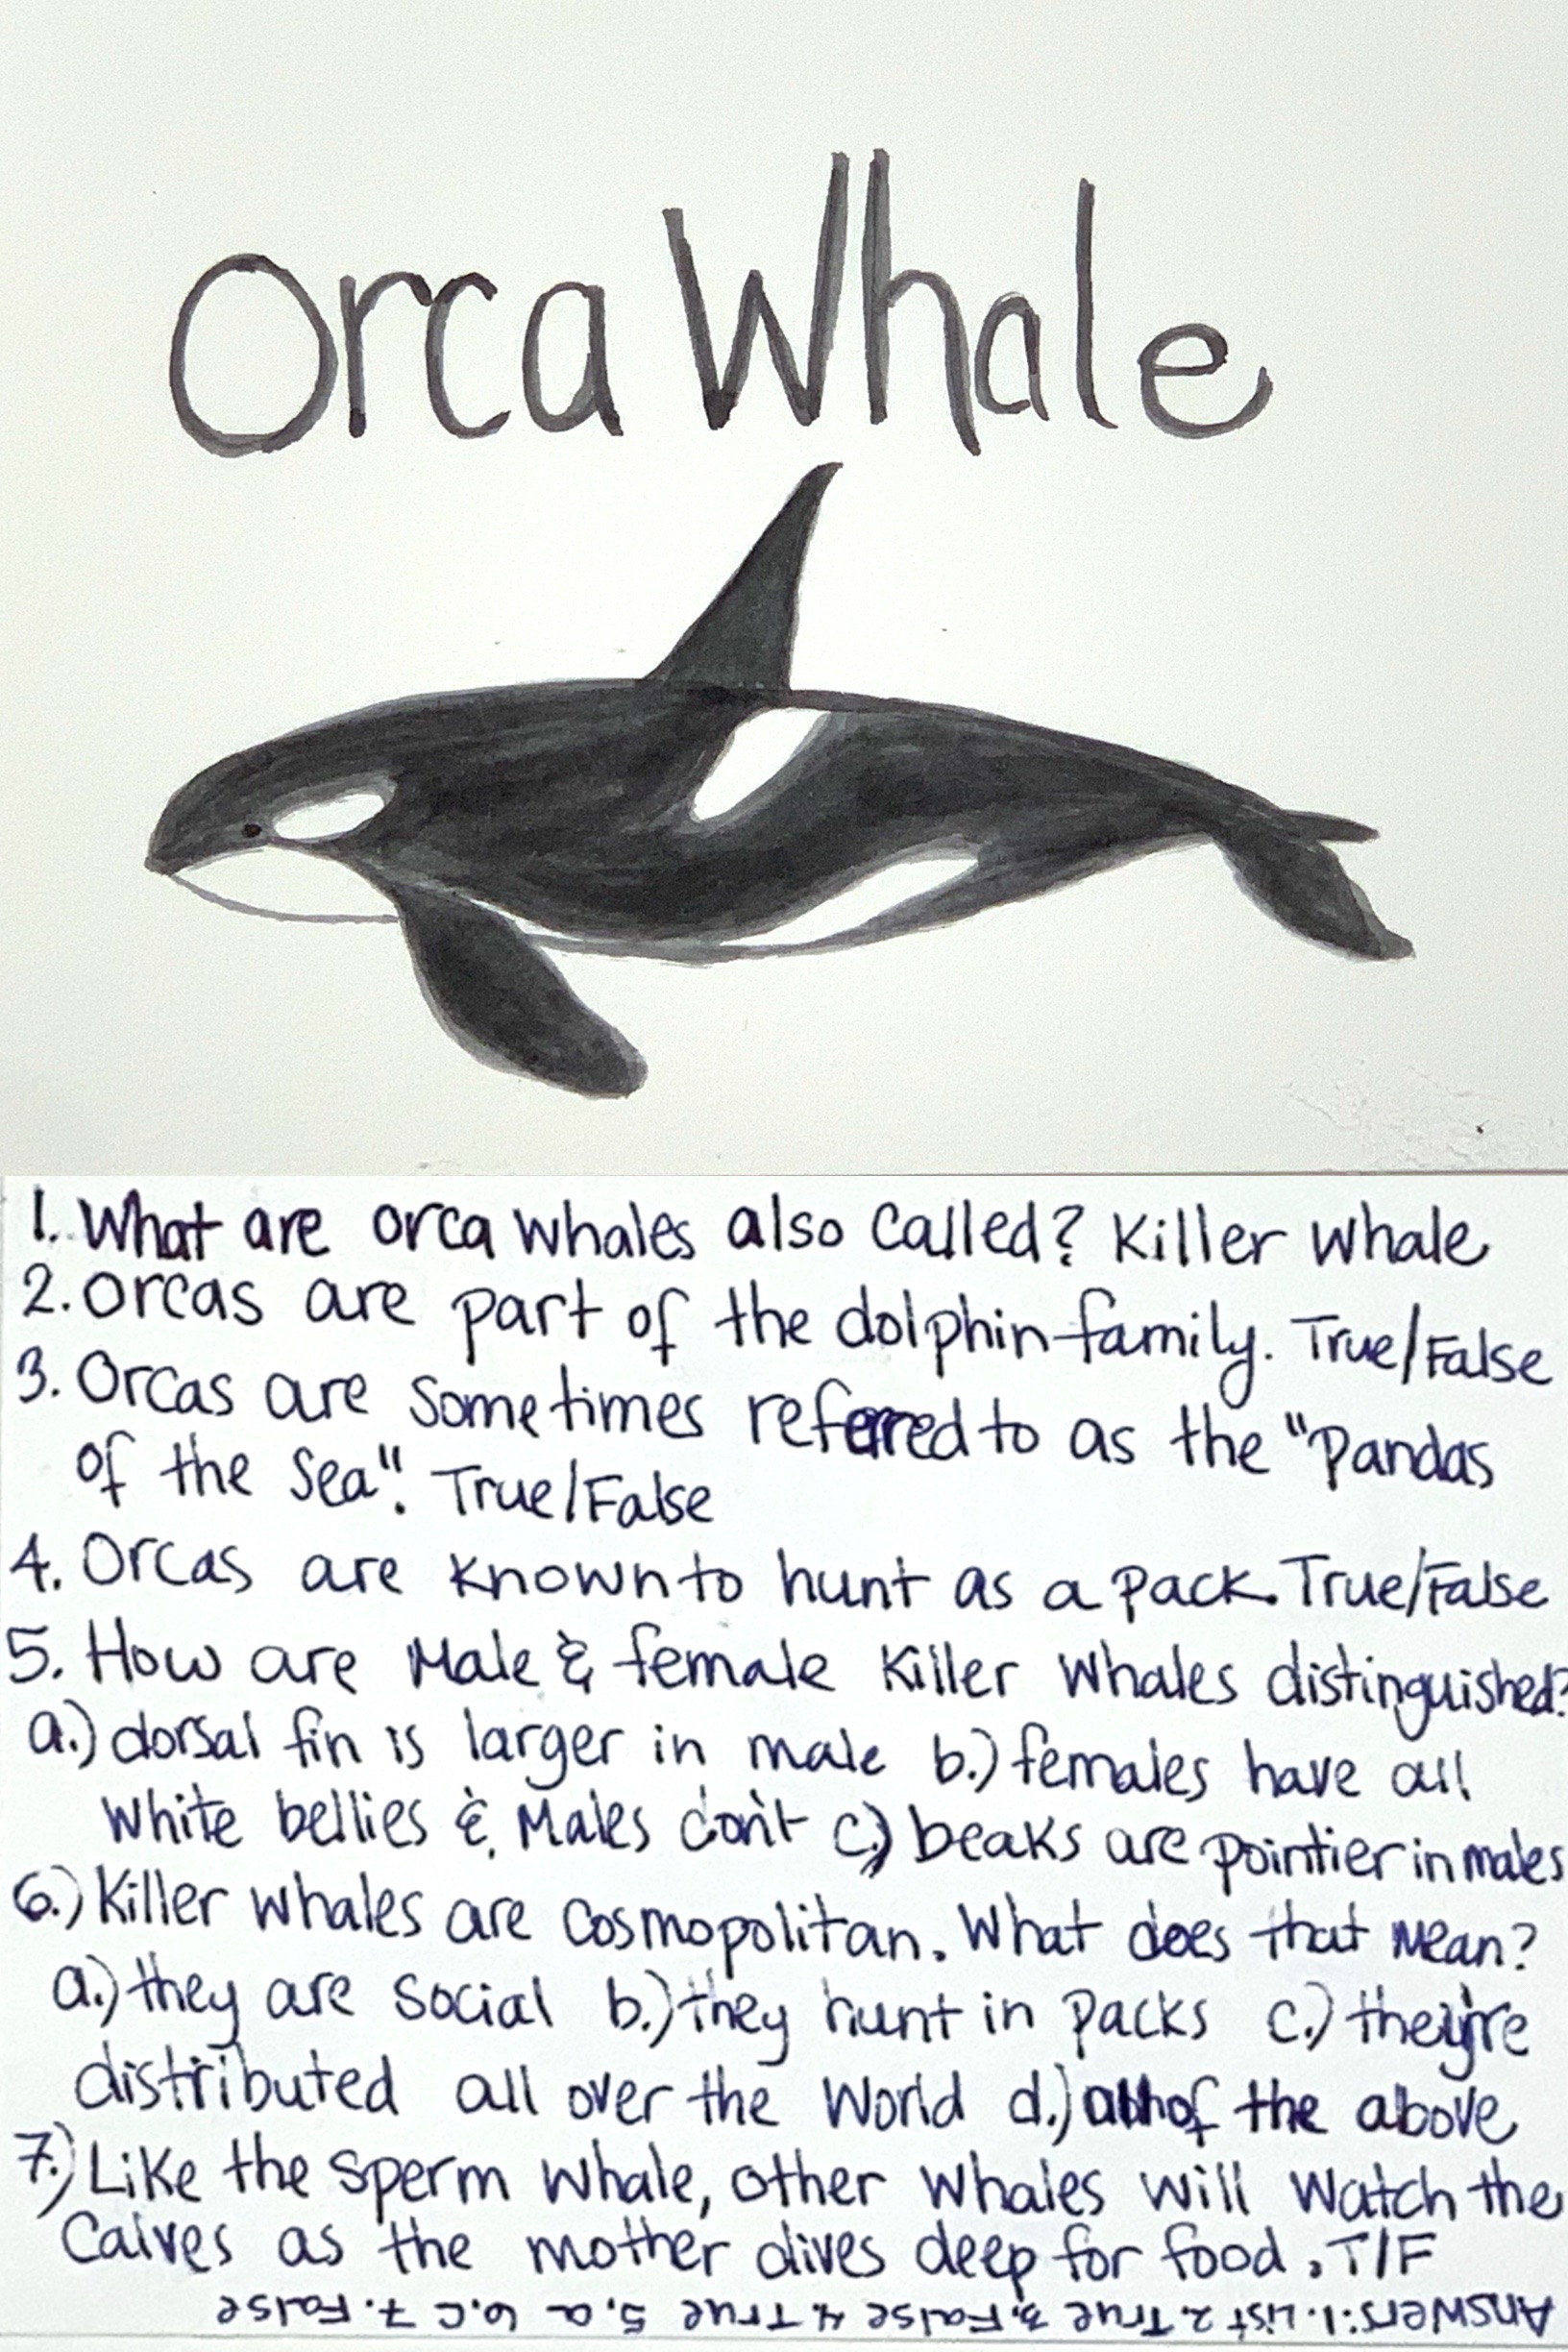 Orca Whale
1. What are orca whales also called? Killer Whale
2. Orcas are part of the dolphin family. True/False
3. Orcas are sometimes referred to as the "Pandas
of the Sea". True/False
4. Orcas are known to hunt as a pack. True/False
5. How are Male & female Killer Whales distinguished?
a.) dorsal fin is larger in male b.) females have all
White bellies & Males don't c.) beaks are pointier in males
6.) Killer Whales are Cosmopolitan. What does that Mean?
a.) they are Social b.) they hunt in Packs c.) they're
distributed all over the World d.) all of the above
7.) Like the Sperm Whale, other Whales will Watch the
Calves as the mother dives deep for food. T/F
Answers: 1. List 2. True 3. False 4. True 5. a 6. C 7. False